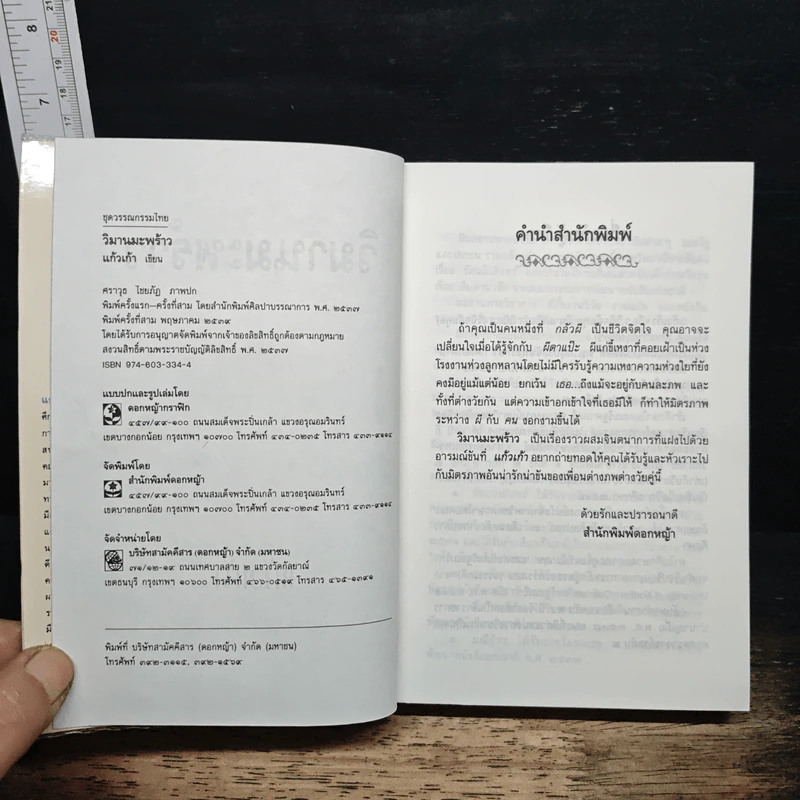 8
7
20
19
18
17
ชุดวรรณกรรมไทย
วิมานมะพร้าว
แก้วเก้า เขียน
ศราวุธ ไชยภัฏ ภาพปก
พิมพ์ครั้งแรก–ครั้งที่สาม โดยสำนักพิมพ์ศิลปาบรรณาการ พ.ศ. ๒๕๓๗
พิมพ์ครั้งที่สาม พฤษภาคม ๒๕๓๙
โดยได้รับการอนุญาตจัดพิมพ์จากเจ้าของลิขสิทธิ์ถูกต้องตามกฎหมาย
สงวนสิทธิ์ตามพระราชบัญญัติลิขสิทธิ์ พ.ศ. ๒๕๓๗
ISBN 974-603-334-4
แบบปกและรูปเล่มโดย
ดอกหญ้ากราฟิก
๔๕๗/๙๙-๑๐๐ ถนนสมเด็จพระปิ่นเกล้า แขวงอรุณอมรินทร์
เขตบางกอกน้อย กรุงเทพฯ ๑๐๗๐๐ โทรศัพท์ ๔๓๔-๐๒๓๕ โทรสาร ๔๓๓-๙๑๑๔
จัดพิมพ์โดย
สำนักพิมพ์ดอกหญ้า
๔๕๗/๙๙-๑๐๐ ถนนสมเด็จพระปิ่นเกล้า แขวงอรุณอมรินทร์
เขตบางกอกน้อย กรุงเทพฯ ๑๐๗๐๐ โทรศัพท์ ๔๓๔-๐๒๓๕ โทรสาร ๔๓๓-๙๑๑๔
จัดจำหน่ายโดย
บริษัทสามัคคีสาร (ดอกหญ้า) จำกัด (มหาชน)
๗๑/๑๒-๑๙ ถนนเทศบาลสาย ๒ แขวงวัดกัลยาณ์
เขตธนบุรี กรุงเทพฯ ๑๐๖๐๐ โทรศัพท์ ๔๖๖-๐๕๑๙ โทรสาร ๔๖๕-๑๓๙๑
พิมพ์ที่ บริษัทสามัคคีสาร (ดอกหญ้า) จำกัด (มหาชน)
โทรศัพท์ ๓๙๒-๓๑๑๕, ๓๙๒-๑๕๖๙
คำนำสำนักพิมพ์
ถ้าคุณเป็นคนหนึ่งที่ กลัวผี เป็นชีวิตจิตใจ คุณอาจจะ
เปลี่ยนใจเมื่อได้รู้จักกับ ผีตาแป๊ะ ผีแก่ขี้เหงาที่คอยเฝ้าเป็นห่วง
โรงงานห่วงลูกหลานโดยไม่มีใครรับรู้ความเหงาความห่วงใยที่ยัง
คงมีอยู่แม้แต่น้อย ยกเว้น เธอ...ถึงแม้จะอยู่กับคนละภพ และ
ทั้งที่ต่างวัยกัน แต่ความเข้าอกเข้าใจที่เธอมีให้ ก็ทำให้มิตรภาพ
ระหว่าง ผี กับ คน งอกงามขึ้นได้
วิมานมะพร้าว เป็นเรื่องราวผสมจินตนาการที่แฝงไปด้วย
อารมณ์ขันที่ แก้วเก้า อยากถ่ายทอดให้คุณได้รับรู้และหัวเราะไป
กับมิตรภาพอันน่ารักน่าขันของเพื่อนต่างภพต่างวัยคู่นี้
ด้วยรักและปรารถนาดี
สำนักพิมพ์ดอกหญ้า